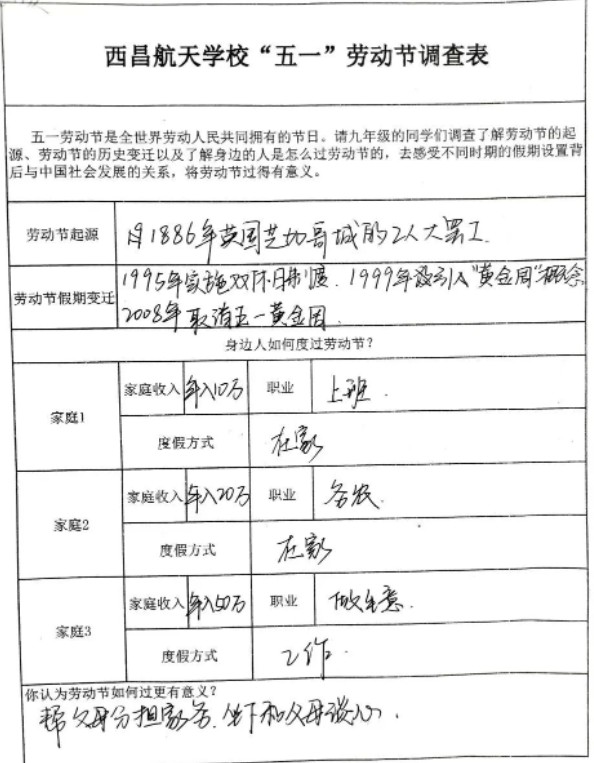 西昌航天学校“五一”劳动节调查表
五一劳动节是全世界劳动人民共同拥有的节日。请九年级的同学们调查了解劳动节的起
源、劳动节的历史变迁以及了解身边的人是怎么过劳动节的，去感受不同时期的假期设置背
后与中国社会发展的关系，将劳动节过得有意义。
劳动节起源 1886年英国芝加哥城的工人大罢工.
劳动节假期变迁 1995年实施双休日制度.1999年引入“黄金周”概念
2008年取消五一黄金周.
身边人如何度过劳动节？
家庭1 家庭收入 年入10万 职业 上班.
度假方式 在家
家庭2 家庭收入 年入20万 职业 务农.
度假方式 在家
家庭3 家庭收入 年入50万 职业 做生意.
度假方式 工作.
你认为劳动节如何过更有意义？
帮父母分担家务.坐下和父母谈心.